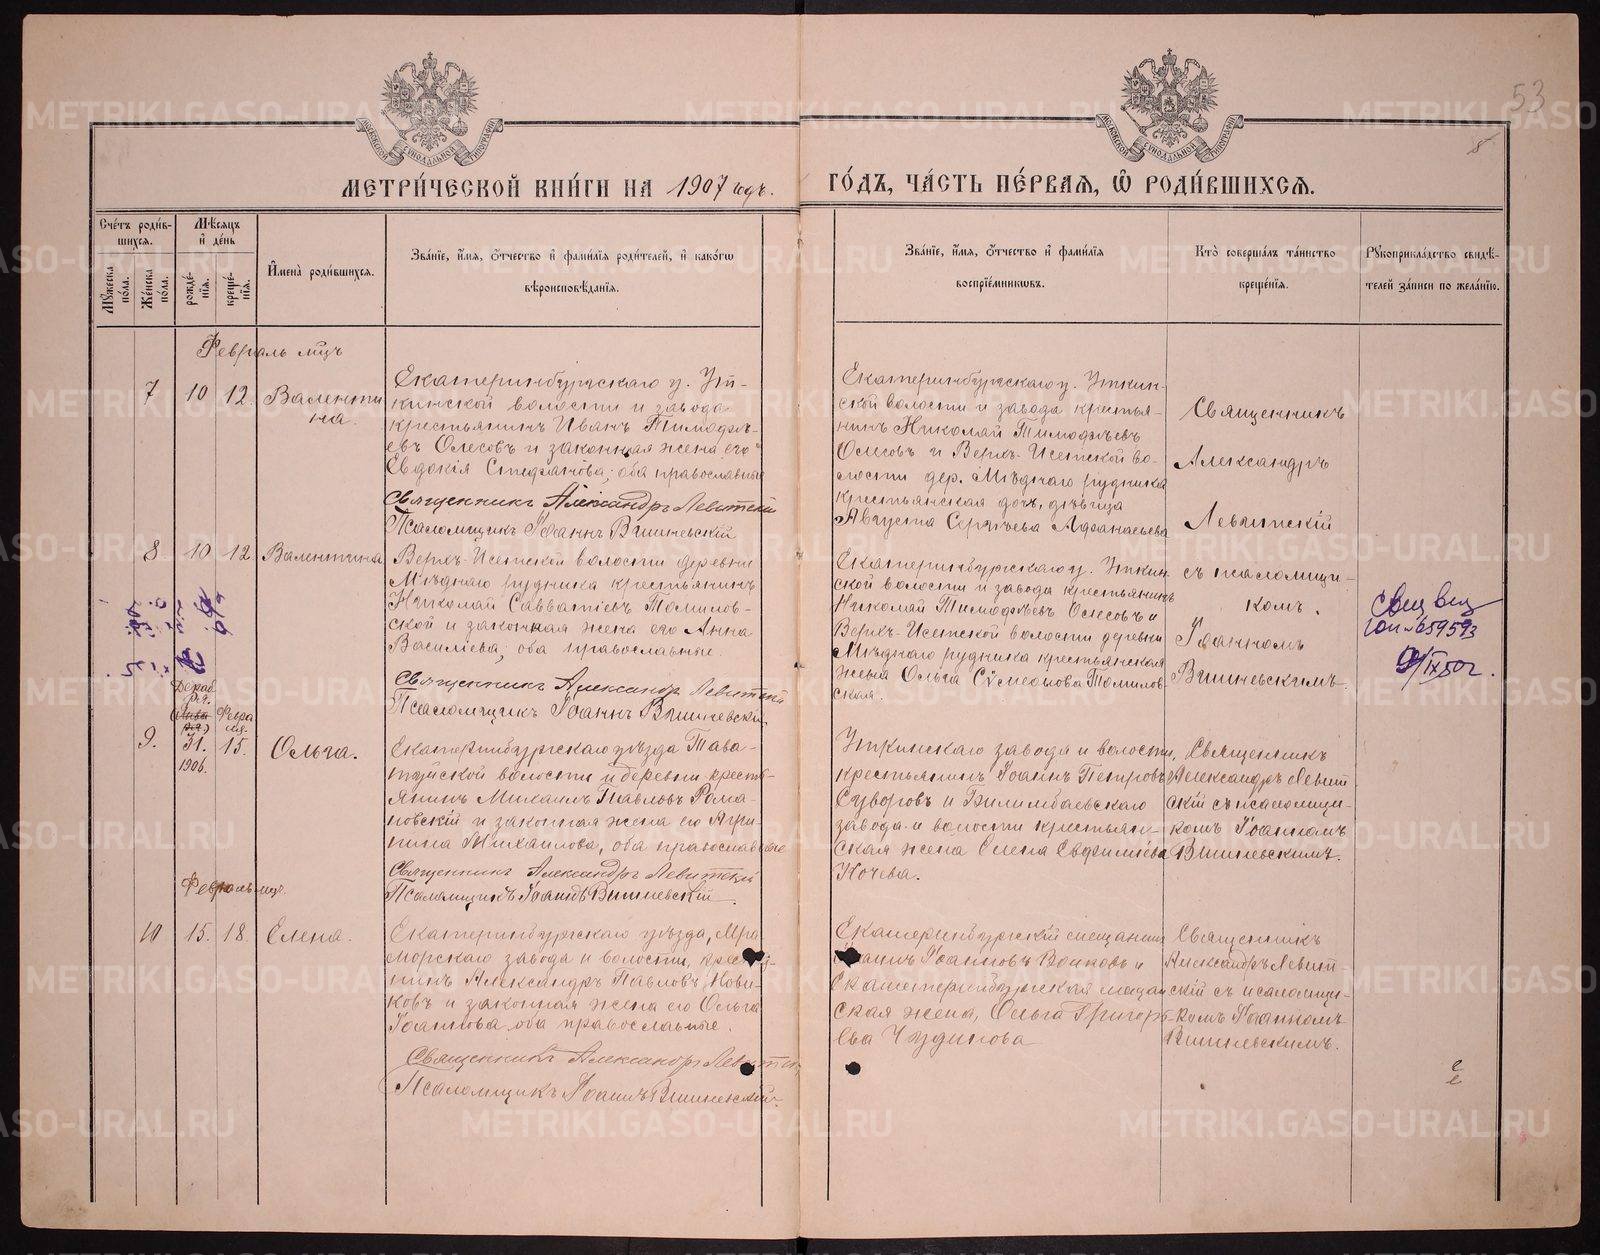 53
МЕТРИ́ЧЕСКОЙ КНИ́ГИ НА 1907 годъ.
ГО́ДЪ, ЧА́СТЬ ПЕ́РВАЯ, Ѽ РОДИ́ВШИХСЯ.
Сче́тъ роди́вшихся.
Му́жеска по́ла.
Же́нска по́ла.
Мѣ́сяцъ и҆ де́нь
рожде́нїя.
креще́нїя.
И҆мена̀ роди́вшихся.
Зва́нїе, и҆́мя, ѻ҆́тчество и҆ фами́лїя роди́телей, и҆ како́гѡ
вѣроисповѣ́данїя.
Зва́нїе, и҆́мя, ѻ҆́тчество и҆ фами́лїя
воспрїе́мникѡвъ.
Кто̀ соверша́лъ та́инство
креще́нїя.
Рꙋкоприкла́дство свидѣ́-
телей за́писи по жела́нїю.
Февраль мцъ
7 10 12. Валенти
на.
Екатеринбургскаго у. Ут-
кинской волости и завода
крестьянинъ Иванъ Тимофѣ-
евъ Олесовъ и законная жена его
Евдокія Стефанова; оба православные
Священникъ Александръ Левитскій
Псаломщикъ Іоаннъ Вишневскій
Екатеринбургскаго у. Уткин-
ской волости и завода крестья-
нинъ Николай Тимофѣевъ
Олесовъ и Верхъ-Исетской во-
лости дер. Мѣднаго рудника
крестьянская дочь, дѣвица
Августа Сергѣева Афанасьева
Священникъ
Александръ
Левитскій
съ псаломщи-
комъ
Іоанномъ
Вишневскимъ.
8 10 12 Валентина
Верхъ-Исетской волости деревни
Мѣднаго рудника крестьянинъ
Николай Савватіевъ Томилов-
ской и законная жена его Анна
Васильева; оба православные.
Священникъ Александръ Левитскій
Псаломщикъ Іоаннъ Вишневскій.
Екатеринбургскаго у. Уткин
ской волости и завода крестьянинъ
Николай Тимофѣевъ Олесовъ и
Верхъ-Исетской волости деревни
Мѣднаго рудника крестьянская
жена Ольга Томилов-
ская.
IX 50 г.
Декаб
ря.
(Янва
ря)
Февра
ля.
9. 31. 15. Ольга.
1906.
Екатеринбургскаго уѣзда Тава-
туйской волости и деревни кресть-
янинъ Михаилъ Павловъ Рома-
новскій и законная жена его Агри-
пина Михаилова, оба православные
Священникъ Александръ Левитскій
Псаломщикъ Іоаннъ Вишневскій.
Уткинскаго завода и волости,
крестьянинъ Іоаннъ Петровъ
Суворовъ и Билимбаевскаго
завода и волости крестьян-
ская жена Елена Евфиміева
Кочева.
Священникъ
Александръ Левит-
скій съ псаломщи-
комъ Іоанномъ
Вишневскимъ.
Февраль мцъ.
10 15. 18. Елена.
Екатеринбургскаго уѣзда, Мра
морскаго завода и волости, крестья
нинъ Александръ Павловъ Нови-
ковъ и законная жена его Ольга
Іоаннова оба православные.
Священникъ Александръ Левитскій
Псаломщикъ Іоаннъ Вишневскій.
Екатеринбургскій мещанинъ
Іоаннъ Іоанновъ Волковъ и
Екатеринбургская мещан
ская жена, Ольга Григорь-
ева Чудинова
Священникъ
Александръ Левит-
скій съ псаломщи-
комъ Іоанномъ
Вишневскимъ.
METRIKI.GASO-URAL.RU